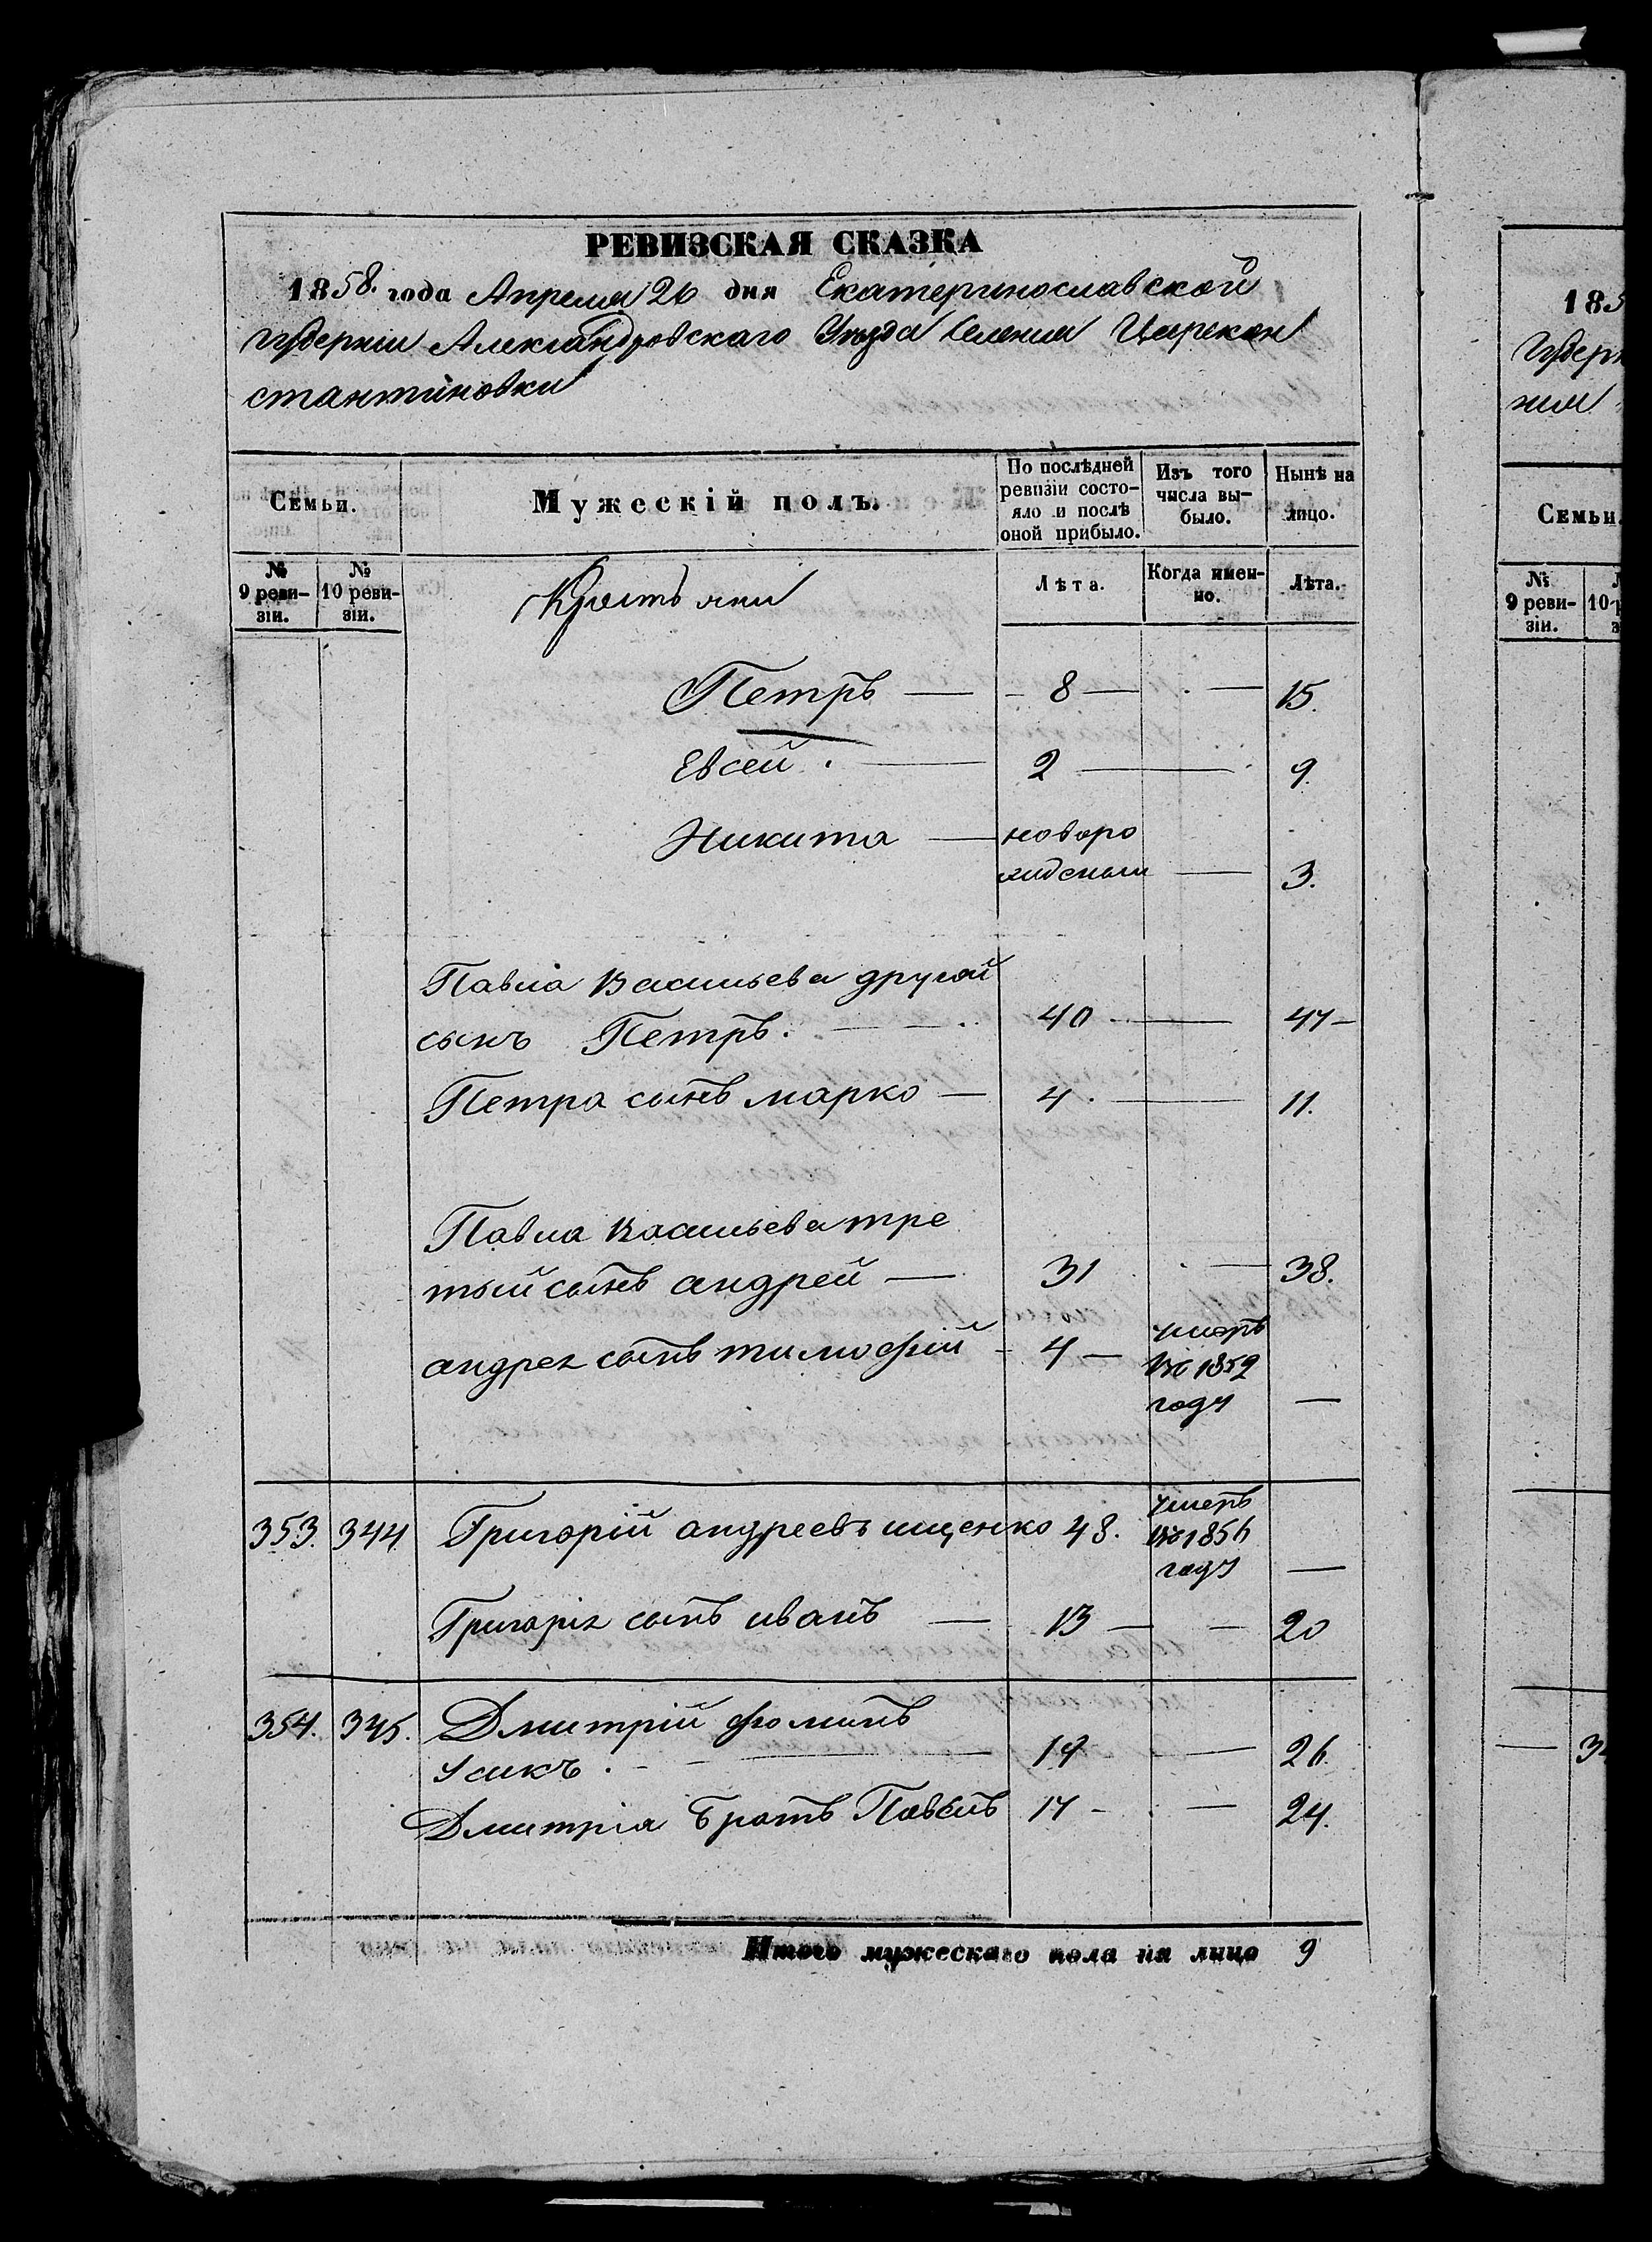 РЕВИЗСКАЯ СКАЗКА
1858. года Апреля 26 дня Екатеринославской
губернии Александровскаго Уезда Селения Цареκон
стантиновки
Семьи.
Мужескій полъ.
По послѣдней ревизіи состо-
яло и послѣ
оной прибыло.
Изъ того
числа вы-
было.
Нынѣ на
лицо.
№
9 реви-
зіи.
№
10 реви-
зіи.
Крестьяни
Лѣта.
Когда имен-
но.
Лѣта.
Петръ — 8 — — 15.
Евсей. — 2 — 9.
Никита — новоро
жденный — 3.
Павла Васильева другой
сынъ Петръ. — 40 — 47 —
Петра сынъ марко — 4. — 11.
Павла Васильева тре
тый сынъ андрей — 31 — 38.
андрея сынъ тимофій — 4 — умеръ
Во 1852
году —
353. 344 Григорій андреевъ ищенко 48. умеръ
Во 1856
году —
Григорія сынъ иванъ — 13 — — 20
354. 345. Дмитрій фоминъ
Усикъ. — 19 — 26.
Дмитрія братъ Павелъ 17 — — 24.
Итого мужескаго пола на лицо 9
185
Губерн
нии
Семьи.
№
9 реви-
зіи.
10